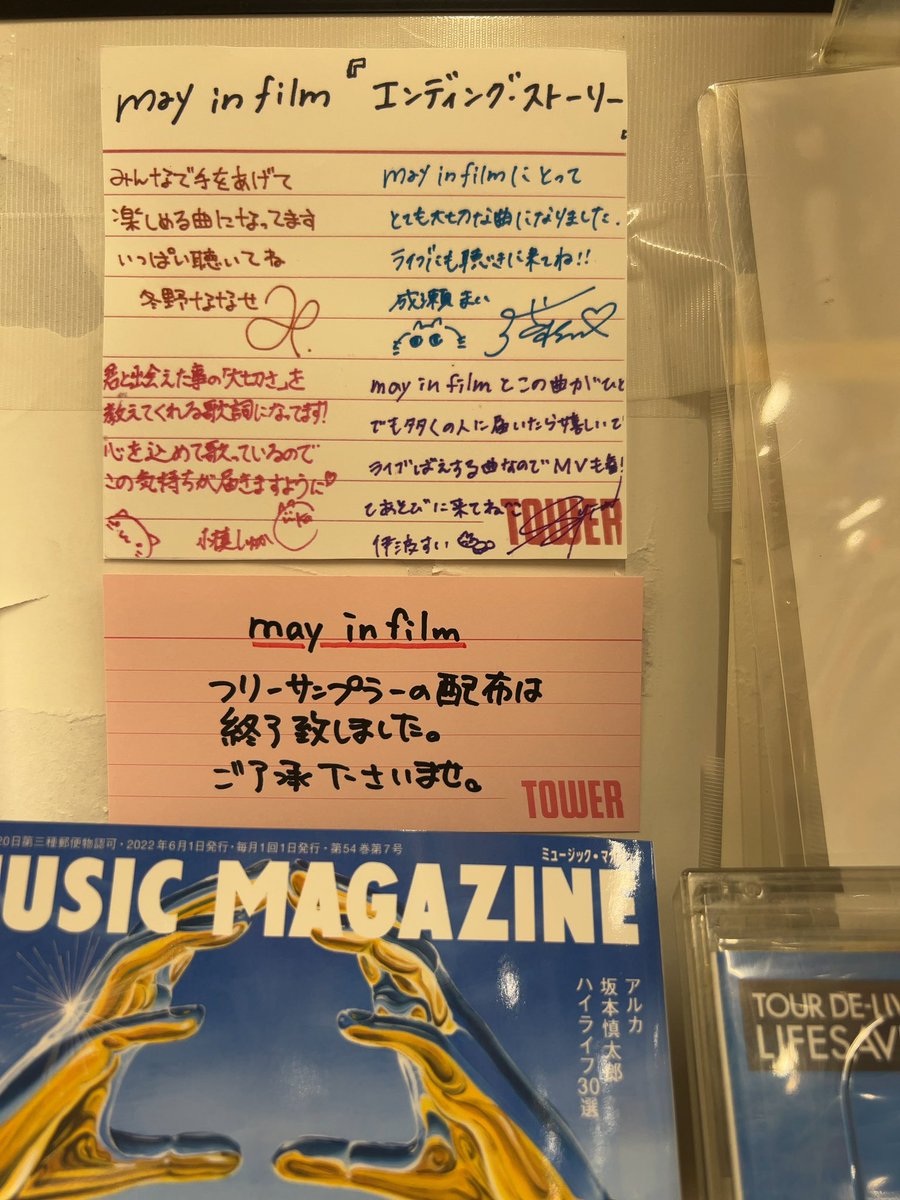 may in film『エンディング・ストーリー』
みんなで手をあげて
楽しめる曲になってます
いっぱい聴いてね
冬野ななせ
may in filmにとって
とても大切な曲になりました.
ライブにも聴きに来てね!!
成瀬まい
君と出会えた事の「大切さ」を
教えてくれる歌詞になってます!
心を込めて歌っているので
この気持ちが届きますように♡
may in filmとこの曲がひと
でも多くの人に届いたら嬉しいで
ライブばえする曲なのでMVも
てあそびに来てね
伊波すい
TOWER
may in film
フリーサンプラーの配布は
終了致しました。
ご了承下さいませ。
TOWER
20日第三種郵便物認可・2022年6月1日発行・毎月1回1日発行・第54巻第7号
ミュージック・マガ
USIC MAGAZINE
アルカ
坂本慎太郎
ハイライフ30選
TOUR DE-LIV
LIFESAV